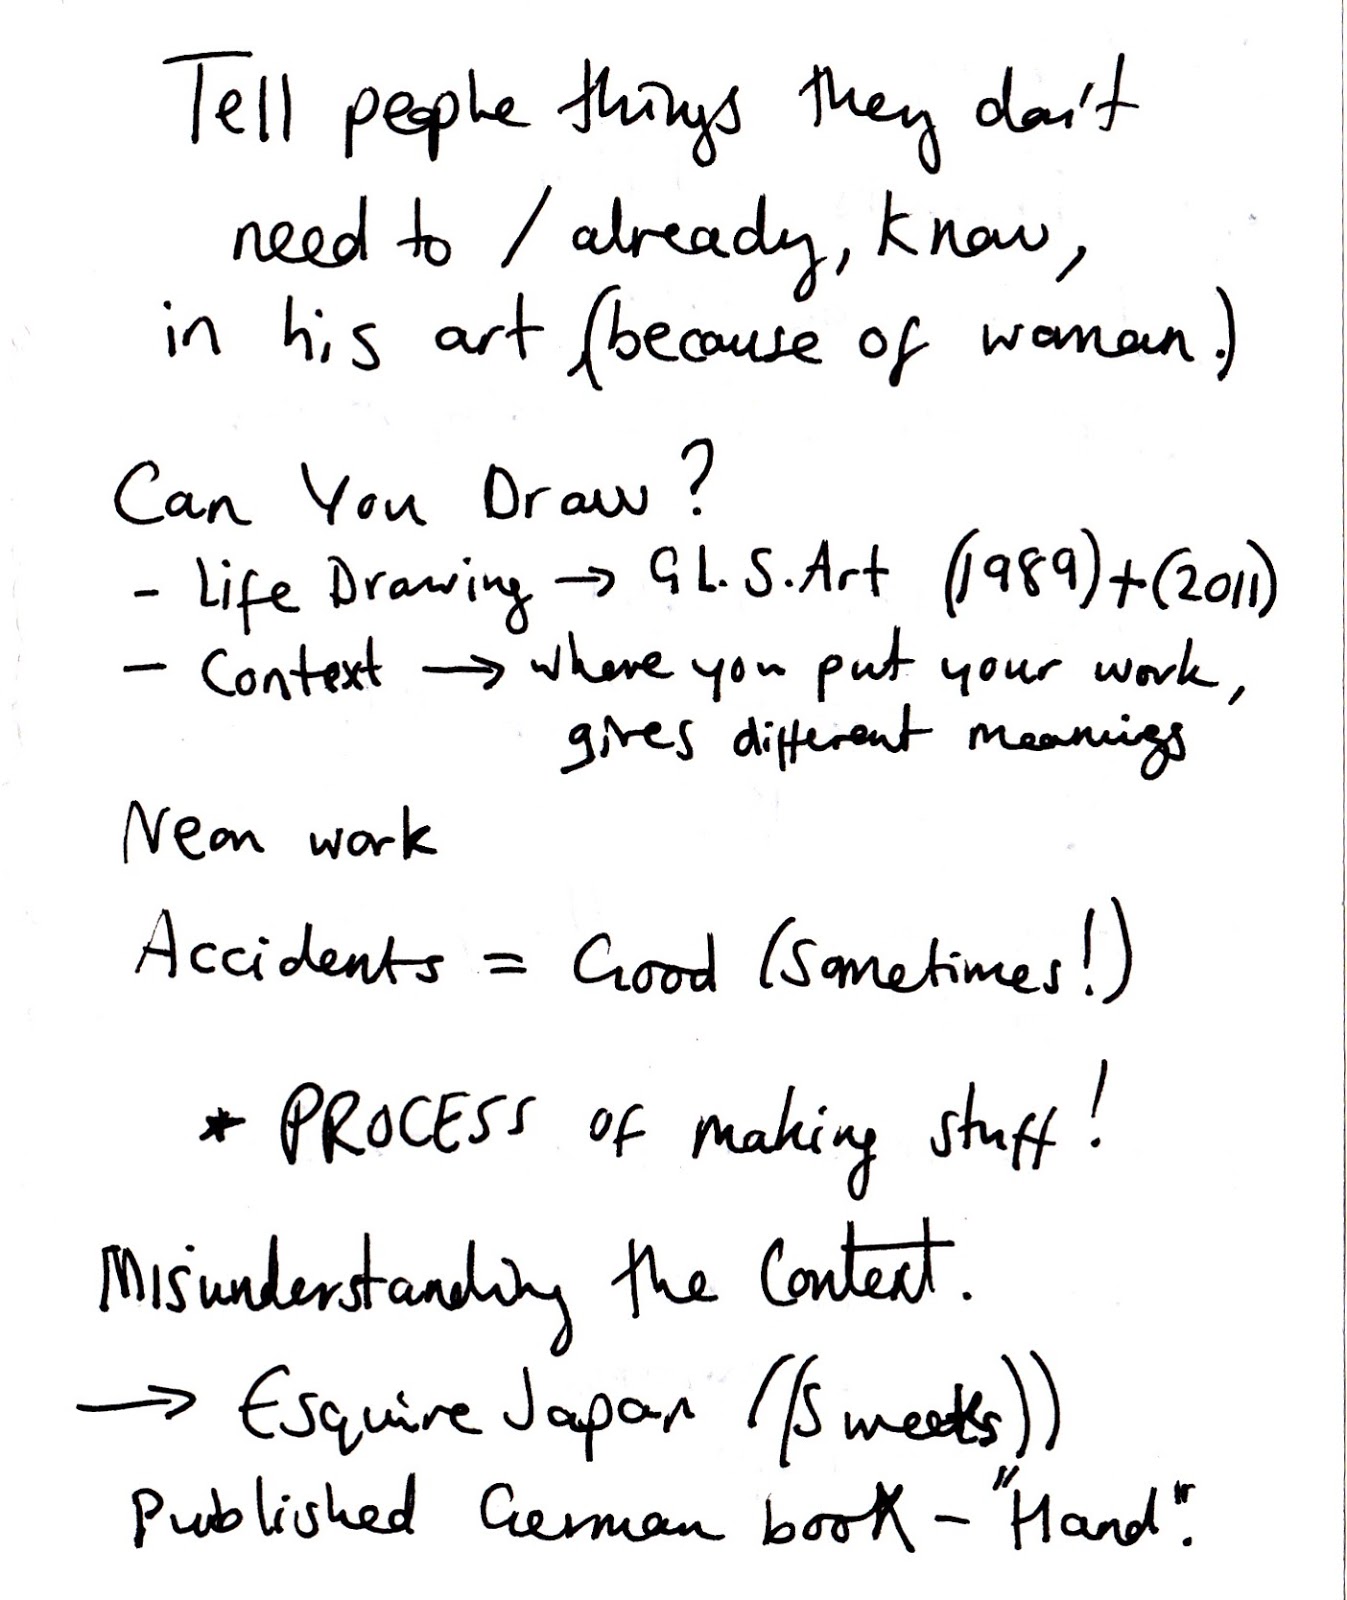 Tell people things they don't
need to / already, know,
in his art (because of woman.)
Can You Draw?
- Life Drawing → G L. S. Art (1989) + (2011)
- Context → where you put your work,
gives different meanings
Neon work
Accidents = Good (Sometimes!)
* PROCESS of making stuff!
Misunderstanding the Context.
→ Esquire Japan ((5 weeks))
Published German book - "Hand".